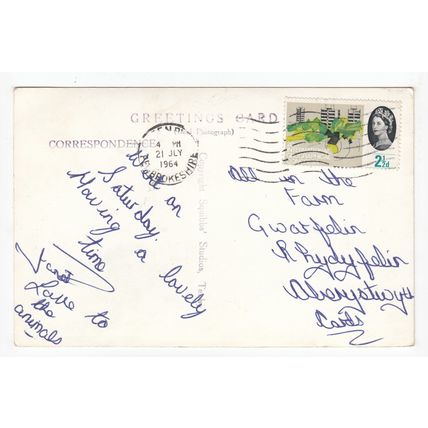 GREETINGS CARD
(Real Photograph)
CORRESPONDENCE
4 PM
21 JLY
1964
PEMBROKESHIRE
2½d
Copyright Squibbs' Studios, Te
on
Saturday.
Having a lovely
time
Love to
the
animals
All in the
Farm
Gwarfelin
Rhydyfelin
Aberystwyth
Cards